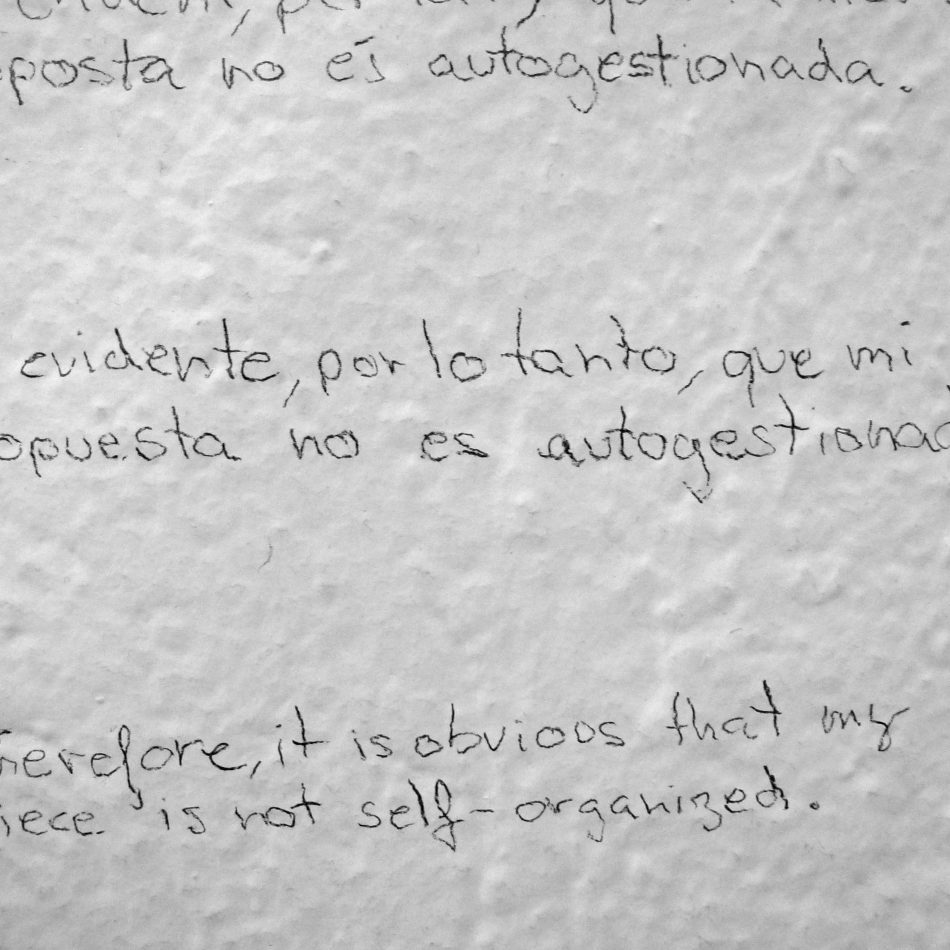 posta no és autogestionada.
evidente, por lo tanto, que mi
opuesta no es autogestionad
herefore, it is obvious that my
iece is not self-organized.